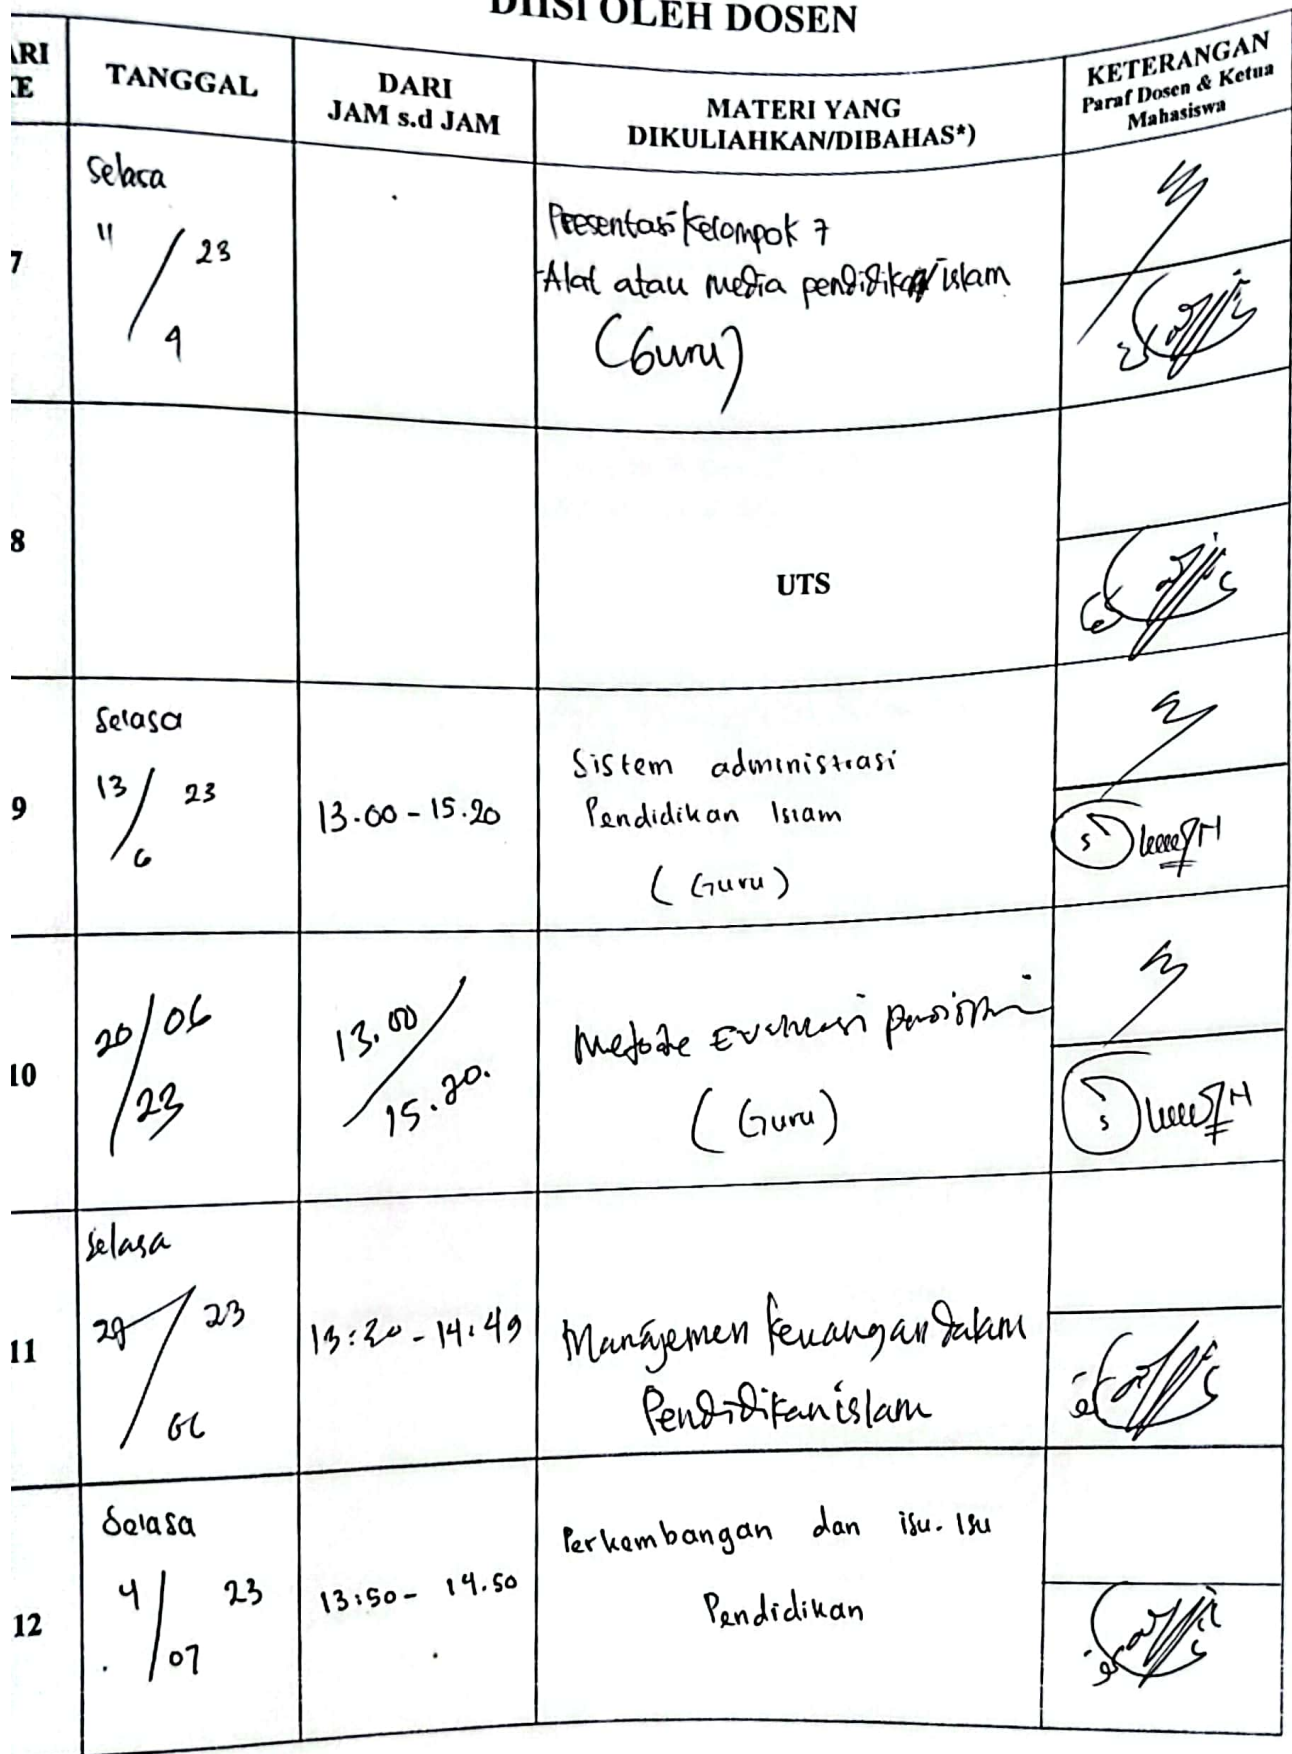 DIISI OLEH DOSEN
ARI
KE
TANGGAL
DARI
JAM s.d JAM
MATERI YANG
DIKULIAHKAN/DIBAHAS*)
KETERANGAN
Paraf Dosen & Ketua
Mahasiswa
7
Selasa
11 / 23
4
Presentasi kelompok 7
-Alat atau media pendidikan islam
(Guru)
8
UTS
9
Selasa
13 / 23
6
13.00 - 15.20
Sistem administrasi
Pendidikan Islam
(Guru)
10
20/06
/23
13.00
/
15.20.
Metode Evaluasi
(Guru)
11
Selasa
/ 23
06
- 14:49
Manajemen keuangan dalam
Pendidikan islam
12
Selasa
4 / 23
07
13:50 - 14.50
Perkembangan dan isu-isu
Pendidikan